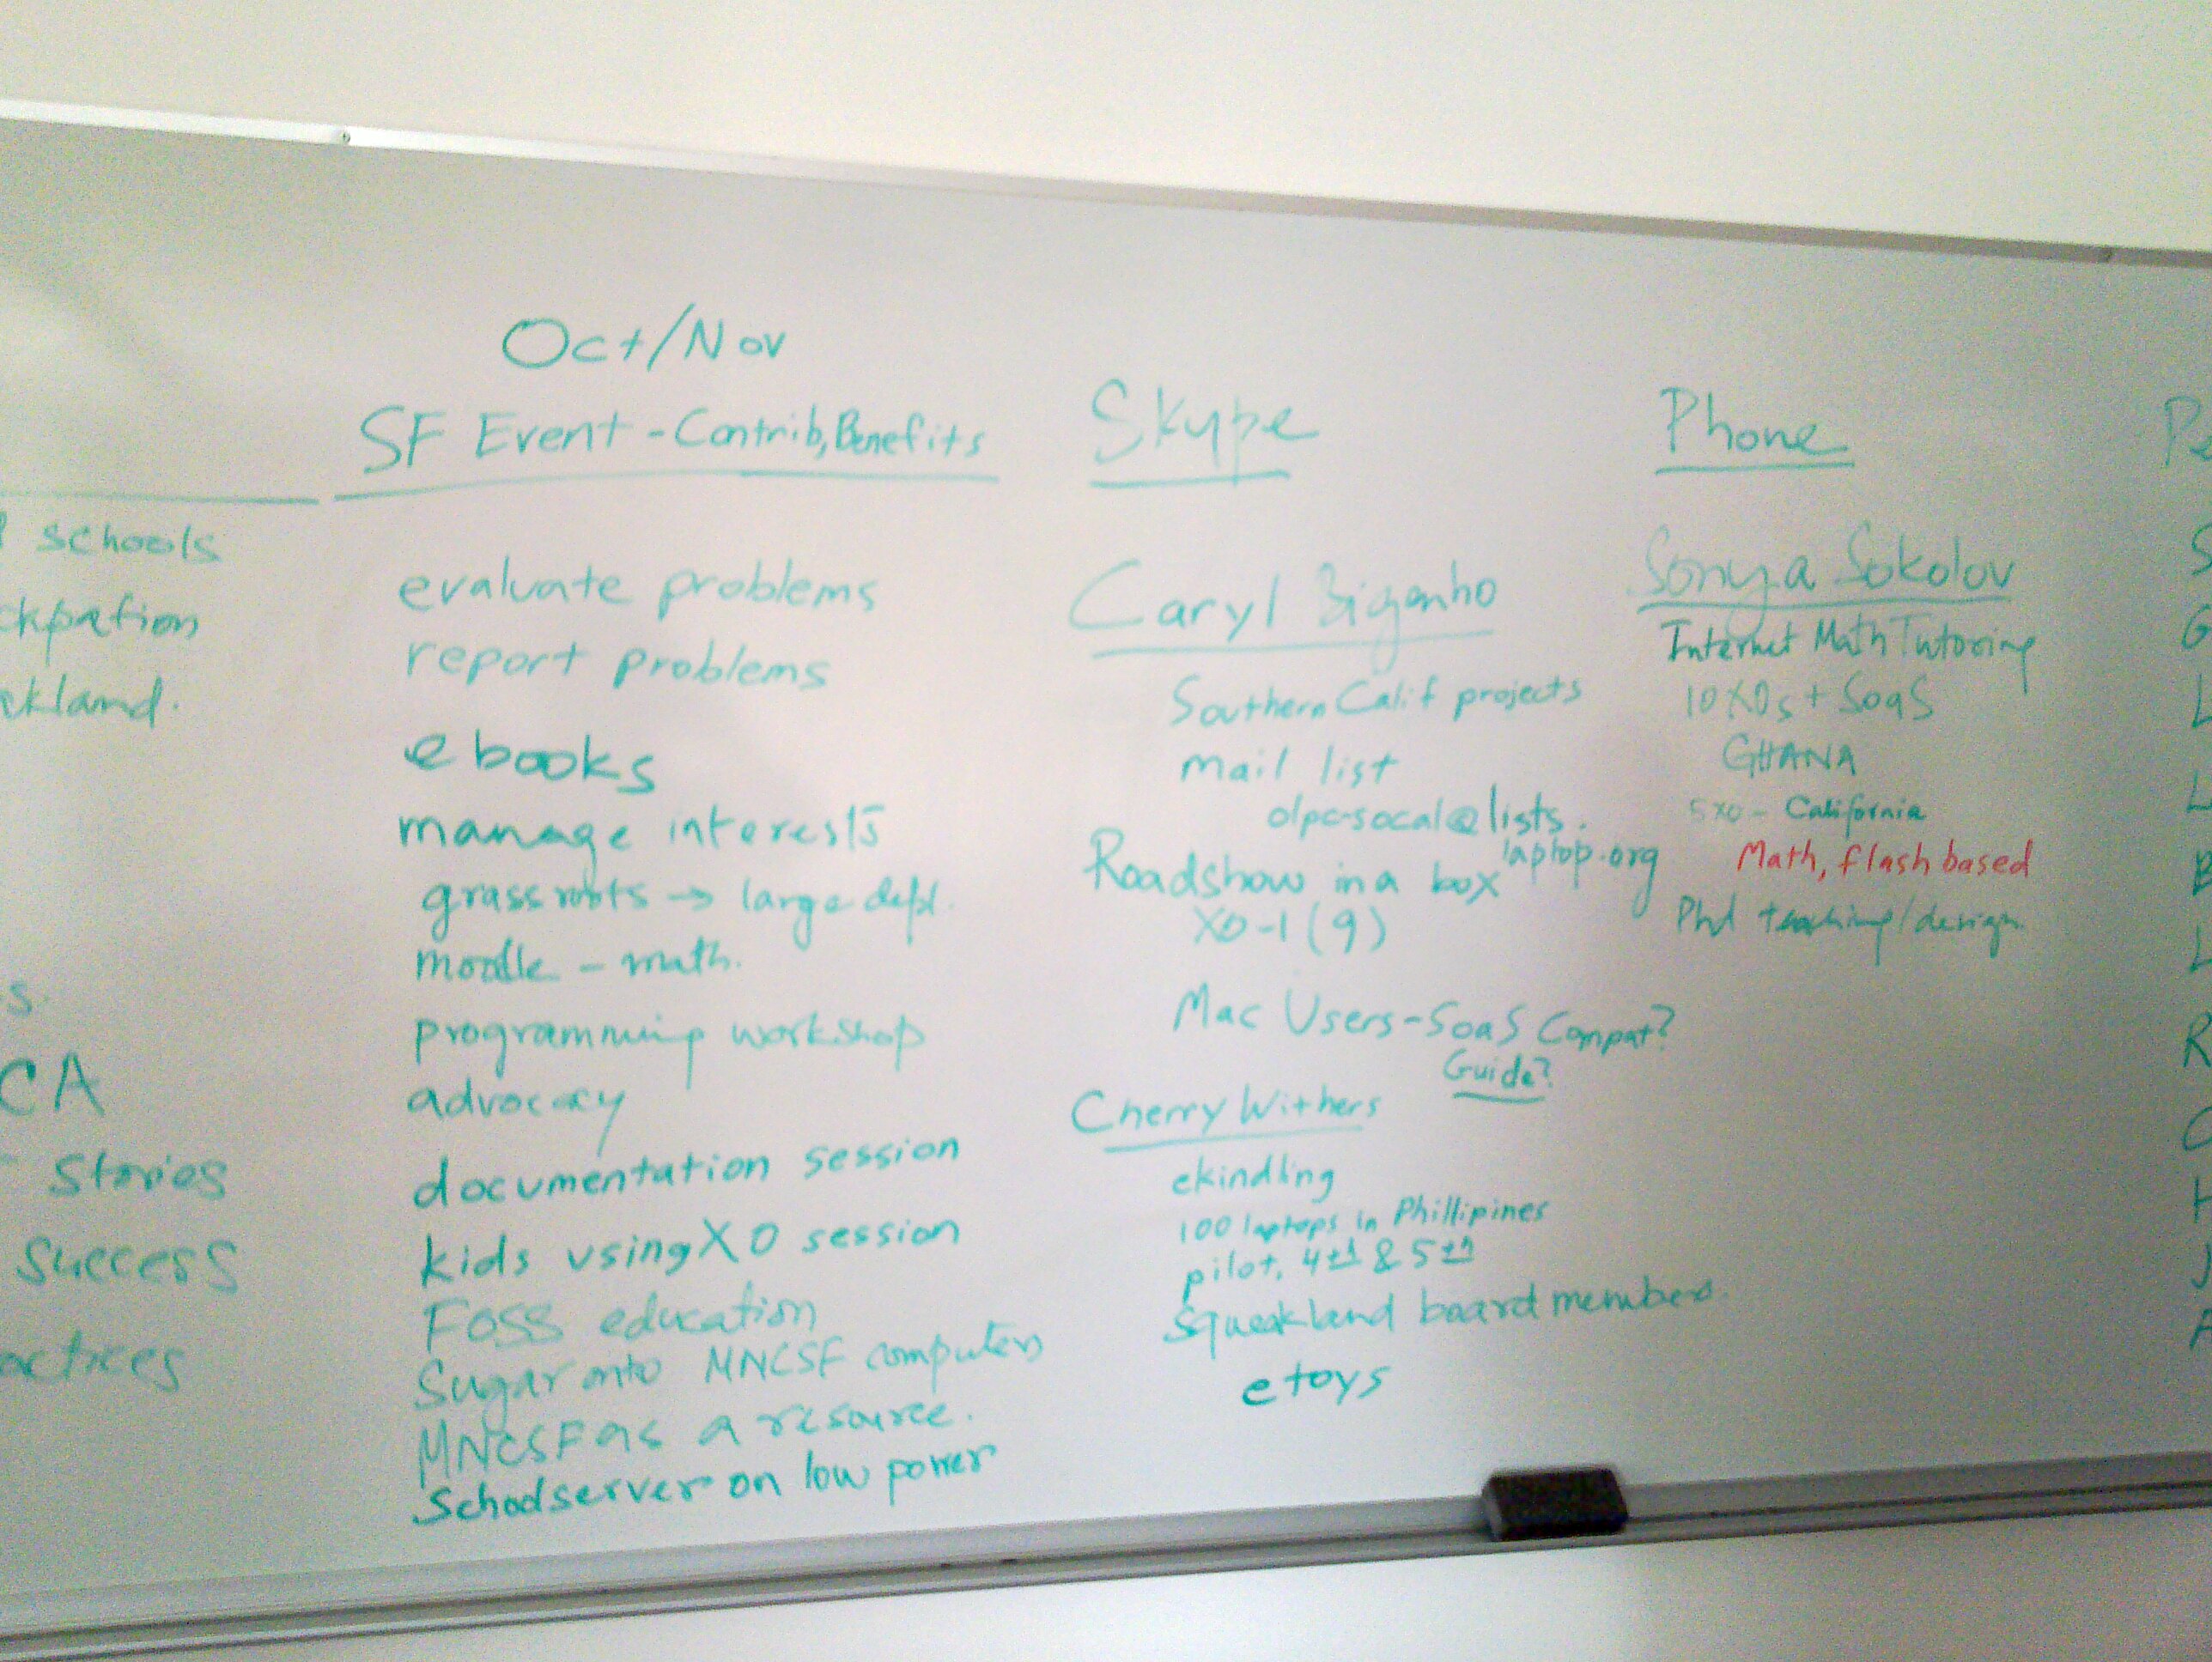 schools
kland.
s.
CA
Stories
Success
actices
Oct/Nov
SF Event - Contrib, Benefits
evaluate problems
report problems
ebooks
manage interests
grassroots → large depl.
moodle - math.
programming workshop
advocacy
documentation session
kids using XO session
FOSS education
Sugar onto MNCSF computers
MNCSF as a resource.
Schoolserver on low power
Skype
Caryl Bigenho
Southern Calif projects
mail list
olpc-socal@lists.
laptop.org
Roadshow in a box
XO-1 (9)
Mac Users - SoaS Compat?
Guide?
Cherry Withers
ekindling
100 laptops in Phillipines
pilot, 4th & 5th
Squeakland board members.
etoys
Phone
Sonya Sokolov
Internet Math Tutoring
10 XOs + SoaS
GHANA
5 XO - California
Math, flash based
Phd teaching/design
Pe
S
G
L
L
B
L
R
C
H
J
A